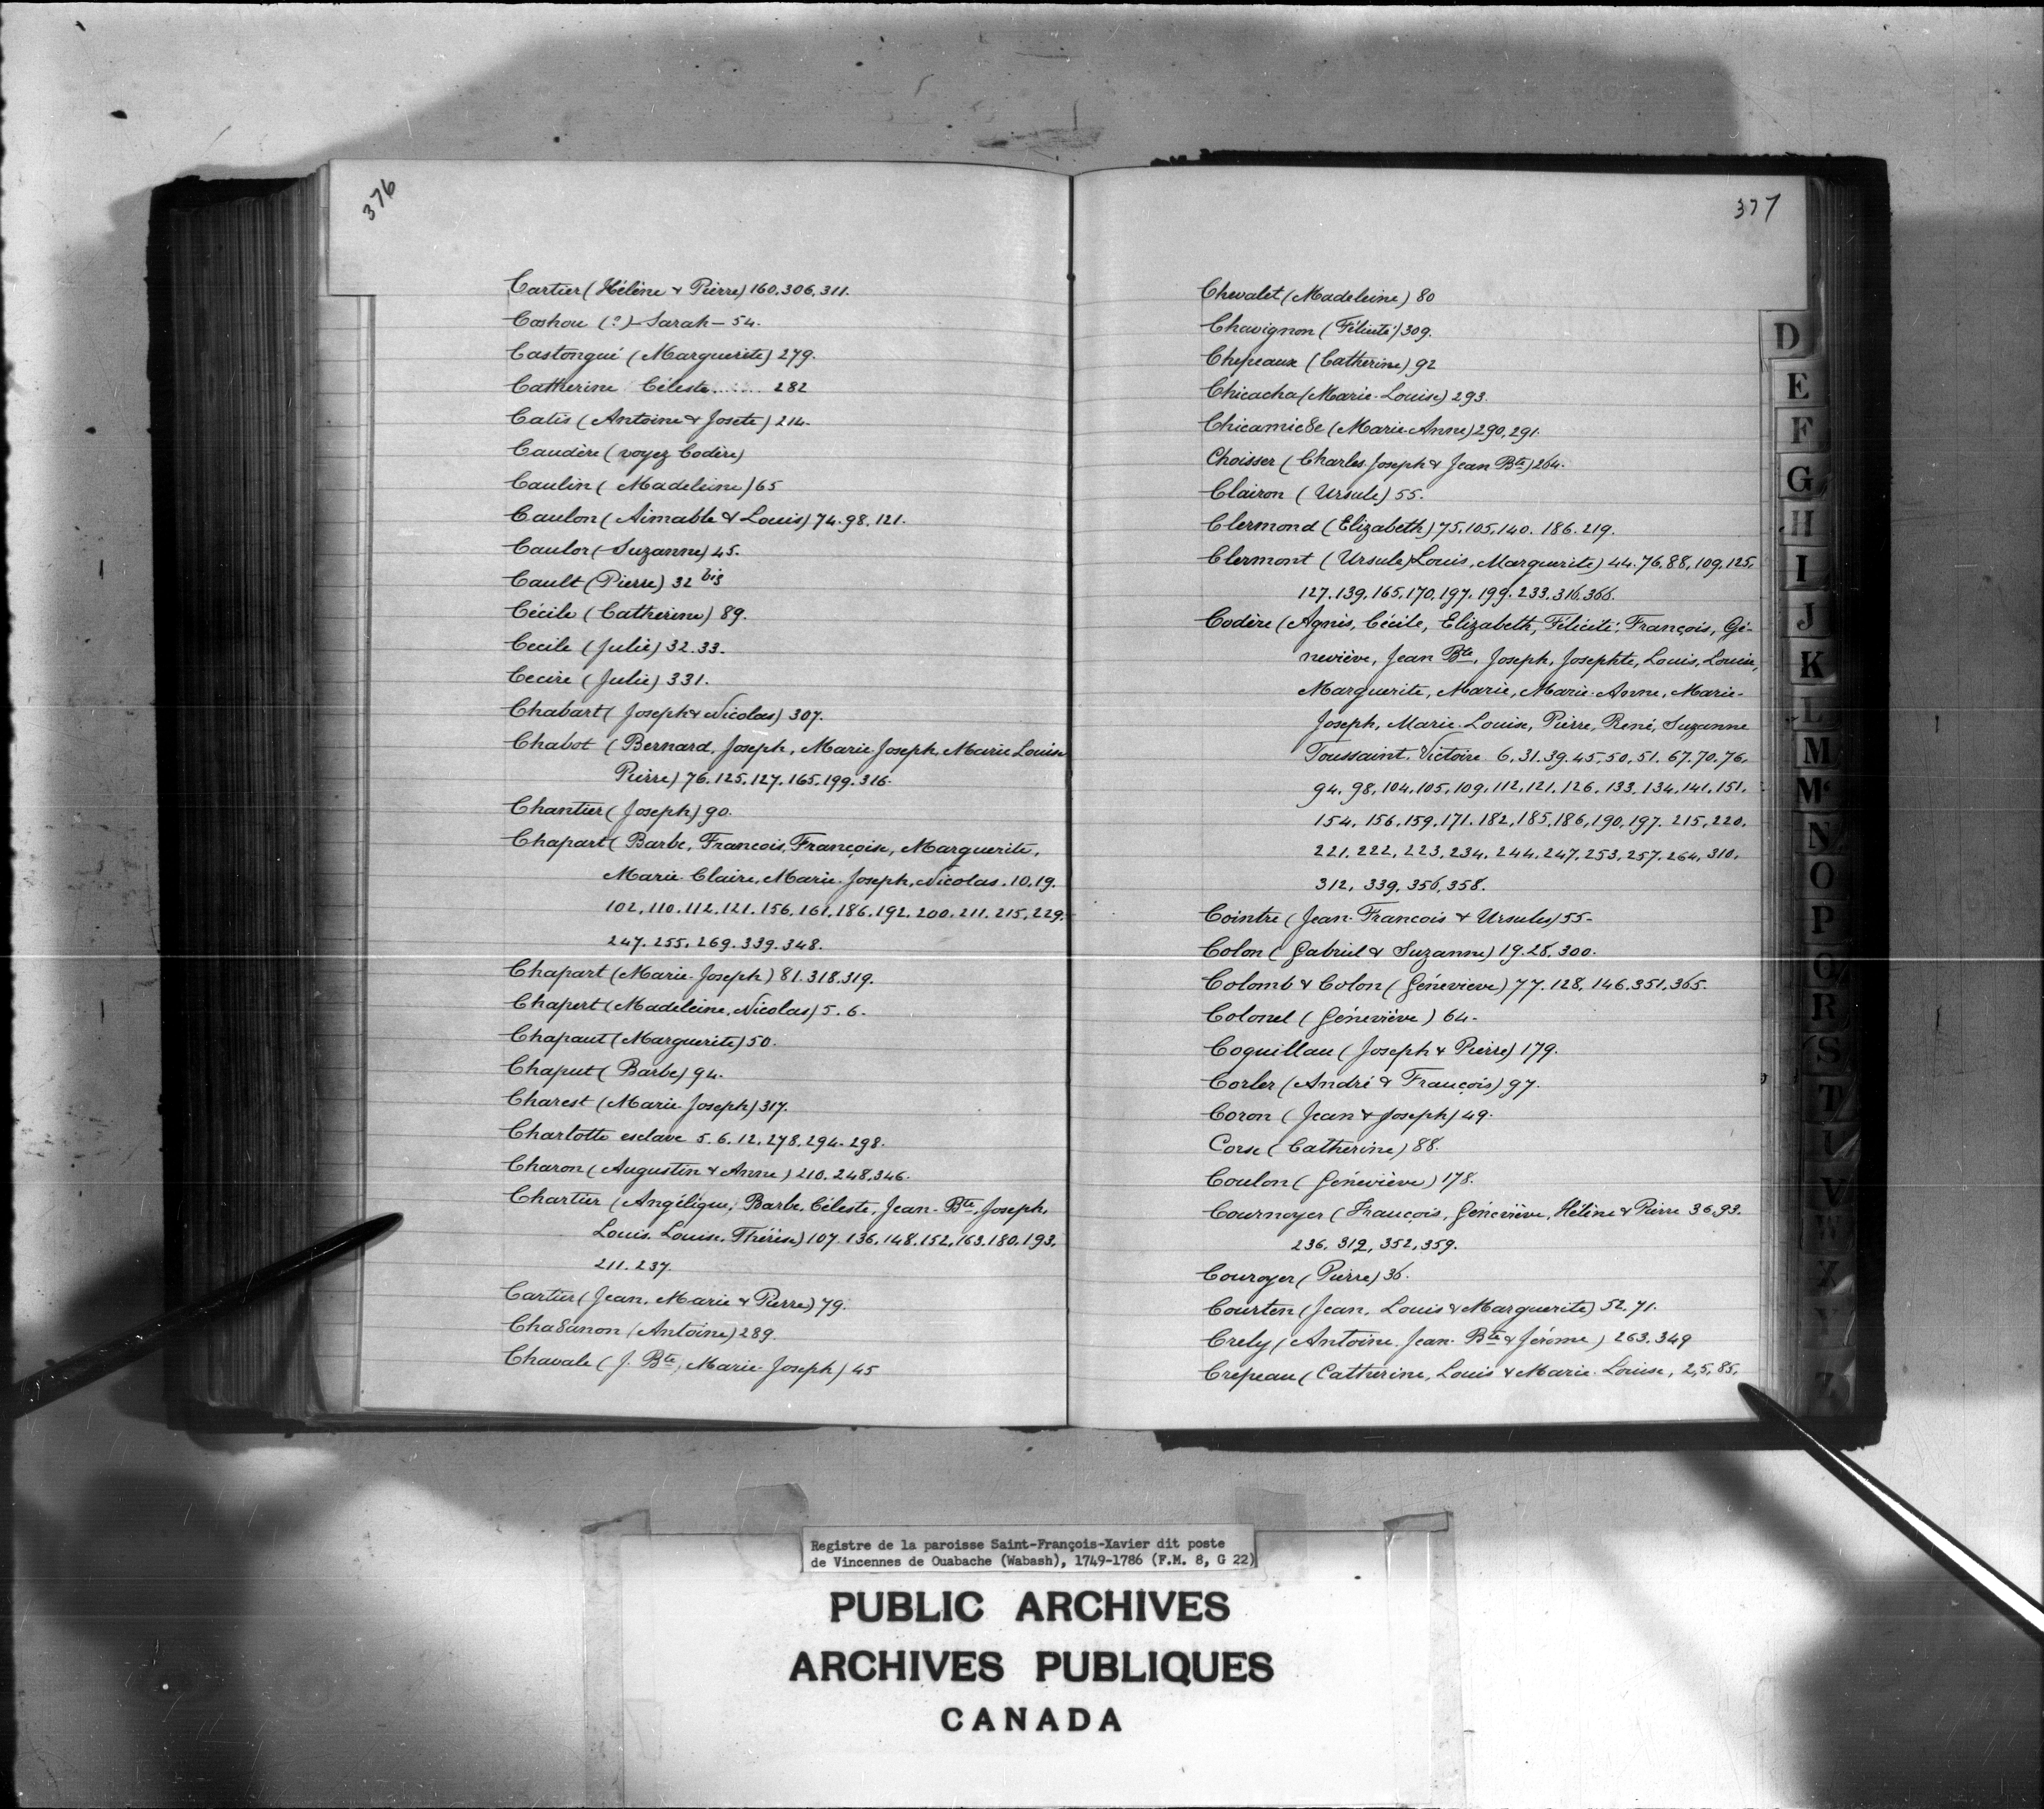 376
Cartier (Hélène & Pierre) 160, 306, 311.
Cashou (?) Sarah - 54.
Castongué (Marguerite) 279.
Catherine Céleste..... 282
Catis (Antoine & Josete) 214.
Caudère (voyez Codère)
Caulin (Madeleine) 65
Caulon (Aimable & Louis) 74. 98. 121.
Caulor (Suzanne) 45.
Cault (Pierre) 32 bis
Cécile (Catherine) 89.
Cecile (Julie) 32. 33.
Cecire (Julie) 331.
Chabart (Joseph & Nicolas) 307.
Chabot (Bernard, Joseph, Marie Joseph, Marie Louise
Pierre) 76. 125. 127. 165. 199. 316.
Chantier (Joseph) 90.
Chapart (Barbe, Francois, Françoise, Marguerite,
Marie-Claire, Marie-Joseph, Nicolas. 10. 19.
102. 110. 112. 121. 156. 161. 186. 192. 200. 211. 215. 229.
247. 255. 269. 339. 348.
Chapart (Marie-Joseph) 81. 318. 319.
Chapert (Madeleine, Nicolas) 5. 6.
Chapaut (Marguerite) 50.
Chaput (Barbe) 94.
Charest (Marie-Joseph) 317.
Charlotte esclave 5. 6. 12. 278. 294. 298.
Charon (Augustin & Anne) 210. 248. 346.
Chartier (Angélique, Barbe, Céleste, Jean-Bte, Joseph,
Louis, Louise, Thérèse) 107. 136. 148. 152. 163. 180. 193.
211. 237.
Cartier (Jean, Marie & Pierre) 79.
Cha8anon (Antoine) 289.
Chavale (J. Bte, Marie-Joseph) 45
377
Chevalet (Madeleine) 80
Chavignon (Félicité) 309.
Chepeaux (Catherine) 92
Chicacha (Marie-Louise) 293.
Chicamic8e (Marie-Anne) 290, 291.
Choisser (Charles-Joseph & Jean Bte) 264.
Clairon (Ursule) 55.
Clermond (Elizabeth) 75, 105, 140. 186. 219.
Clermont (Ursule, Louis, Marguerite) 44. 76. 88, 109, 125,
127. 139. 165, 170. 197. 199. 233. 316. 366.
Codère (Agnès, Cécile, Elizabeth, Félicité, François, Gé-
neviève, Jean Bte, Joseph, Josephte, Louis, Louise,
Marguerite, Marie, Marie-Anne, Marie-
Joseph, Marie-Louise, Pierre, René, Suzanne
Toussaint, Victoire 6, 31. 39. 45, 50, 51. 67. 70. 76,
94. 98, 104. 105. 109. 112, 121. 126. 133. 134. 141. 151.
154. 156. 159. 171. 182. 185. 186, 190, 197. 215, 220.
221. 222. 223. 234. 244. 247. 253. 257. 264. 310.
312, 339. 356, 358.
Cointre (Jean-Francois & Ursule) 55-
Colon (Gabriel & Suzanne) 19. 28, 300.
Colomb & Colon (Géneviève) 77. 128, 146. 351. 365.
Colonel (Géneviève) 64.
Coquillau (Joseph & Pierre) 179.
Corler (André & François) 97.
Coron (Jean & Joseph) 49.
Corse (Catherine) 88.
Coulon (Géneviève) 178.
Cournoyer (François, Géneviève, Hélène & Pierre 36. 93.
236. 312, 352, 359.
Couroyer (Pierre) 36.
Courten (Jean, Louis & Marguerite) 52. 71.
Crely (Antoine, Jean-Bte & Jérome) 263. 349
Crepeau (Catherine, Louis & Marie-Louise, 2, 5, 85,
D
E
F
G
H
I
J
K
L
M
Mc
N
O
P
Q
R
S
T
U
V
W
X
Y
Z
Registre de la paroisse Saint-François-Xavier dit poste
de Vincennes de Ouabache (Wabash), 1749-1786 (F.M. 8, G 22)
PUBLIC ARCHIVES
ARCHIVES PUBLIQUES
CANADA